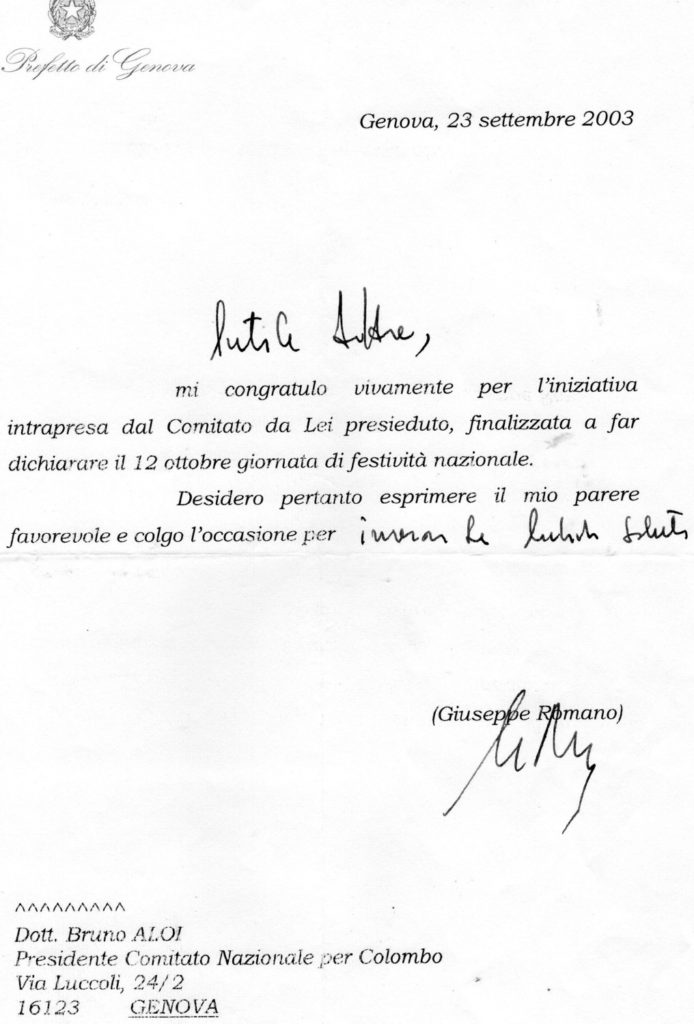 Prefetto di Genova
Genova, 23 settembre 2003
mi congratulo vivamente per l'iniziativa
intrapresa dal Comitato da Lei presieduto, finalizzata a far
dichiarare il 12 ottobre giornata di festività nazionale.
Desidero pertanto esprimere il mio parere
favorevole e colgo l'occasione per
(Giuseppe Romano)
^^^^^^^^^
Dott. Bruno ALOI
Presidente Comitato Nazionale per Colombo
Via Luccoli, 24/2
16123 GENOVA